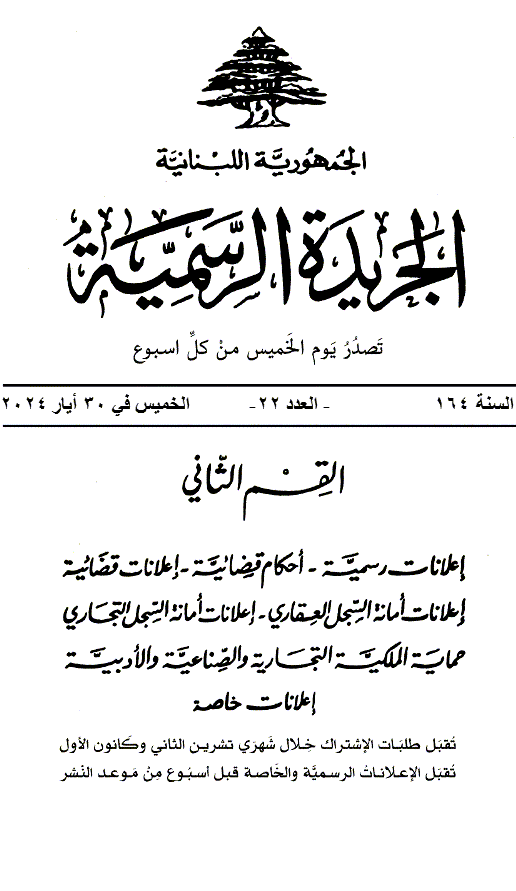 الجُمهُوريَّة اللبْنانيَّة
الجَريدَة الرسَّمِيَّة
تَصدُرُ يَوم الخَميس مِنْ كلِّ اسبوع
السنة ١٦٤ - العدد ٢٢- الخميس في ٣٠ أيار ٢٠٢٤
القِسْم الثّاني
إعلانات رسميَّة - أحكام قضائيَّة - إعلانات قضائية
إعلانات أمانة السِّجل العقاري - إعلانات أمانة السِّجل التجاري
حماية الملكيَّة التجارية والصِّناعيَّة والأدبيَّة
إعلانات خاصة
تُقبَل طلبَات الإشتراك خِلال شَهرَي تشرين الثاني وكَانون الأول
تُقبَل الإعلاناتُ الرسميَّة والخَاصة قبل أسبُوع مِنْ مَوعد النْشر